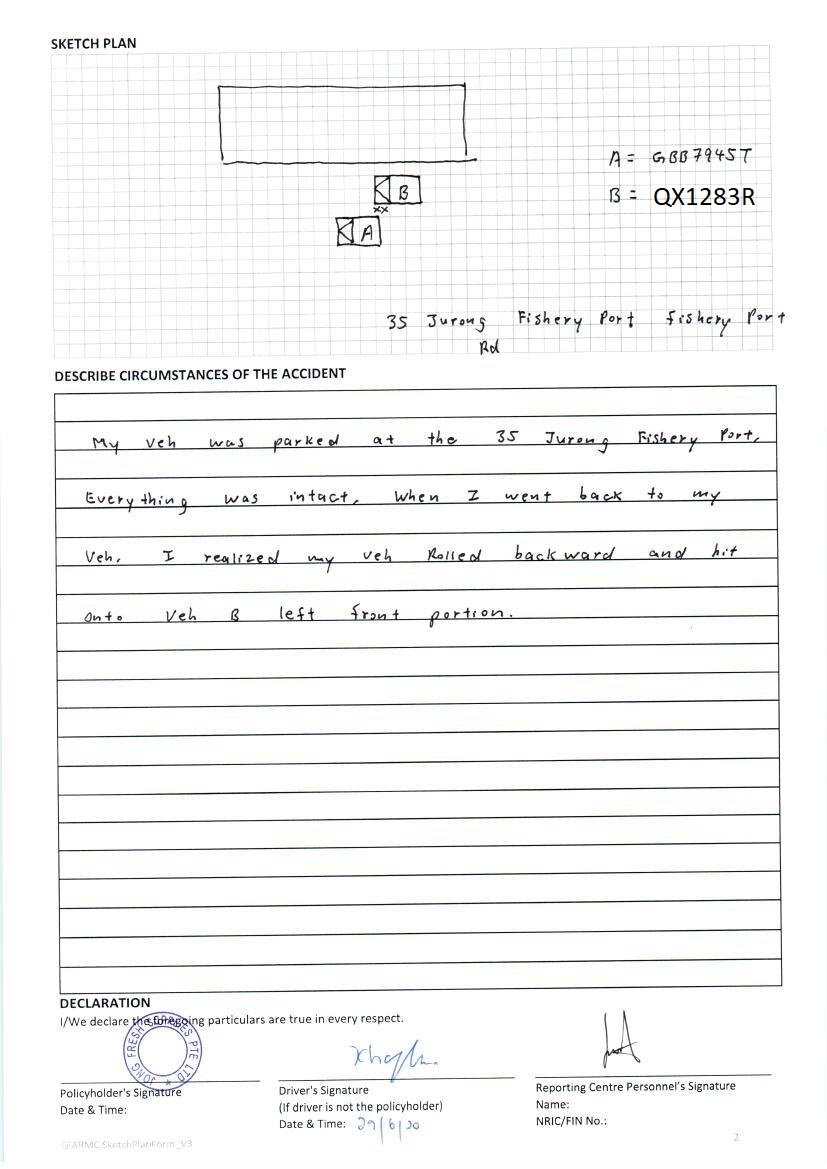 SKETCH PLAN
A = GBB7945T
B
B = QX1283R
xx
A
35 Jurong Fishery Port fishery Port
Rd
DESCRIBE CIRCUMSTANCES OF THE ACCIDENT
My veh was parked at the 35 Jurong Fishery Port,
Everything was intact, when I went back to my
Veh, I realized my veh Rolled backward and hit
onto Veh B left front portion.
DECLARATION
I/We declare the foregoing particulars are true in every respect.
JONG FRESH PTE LTD
Policyholder's Signature
Date & Time:
Driver's Signature
(If driver is not the policyholder)
Date & Time: 29/6/20
Reporting Centre Personnel's Signature
Name:
NRIC/FIN No.:
GIARMC SketchPlanForm_V3
2